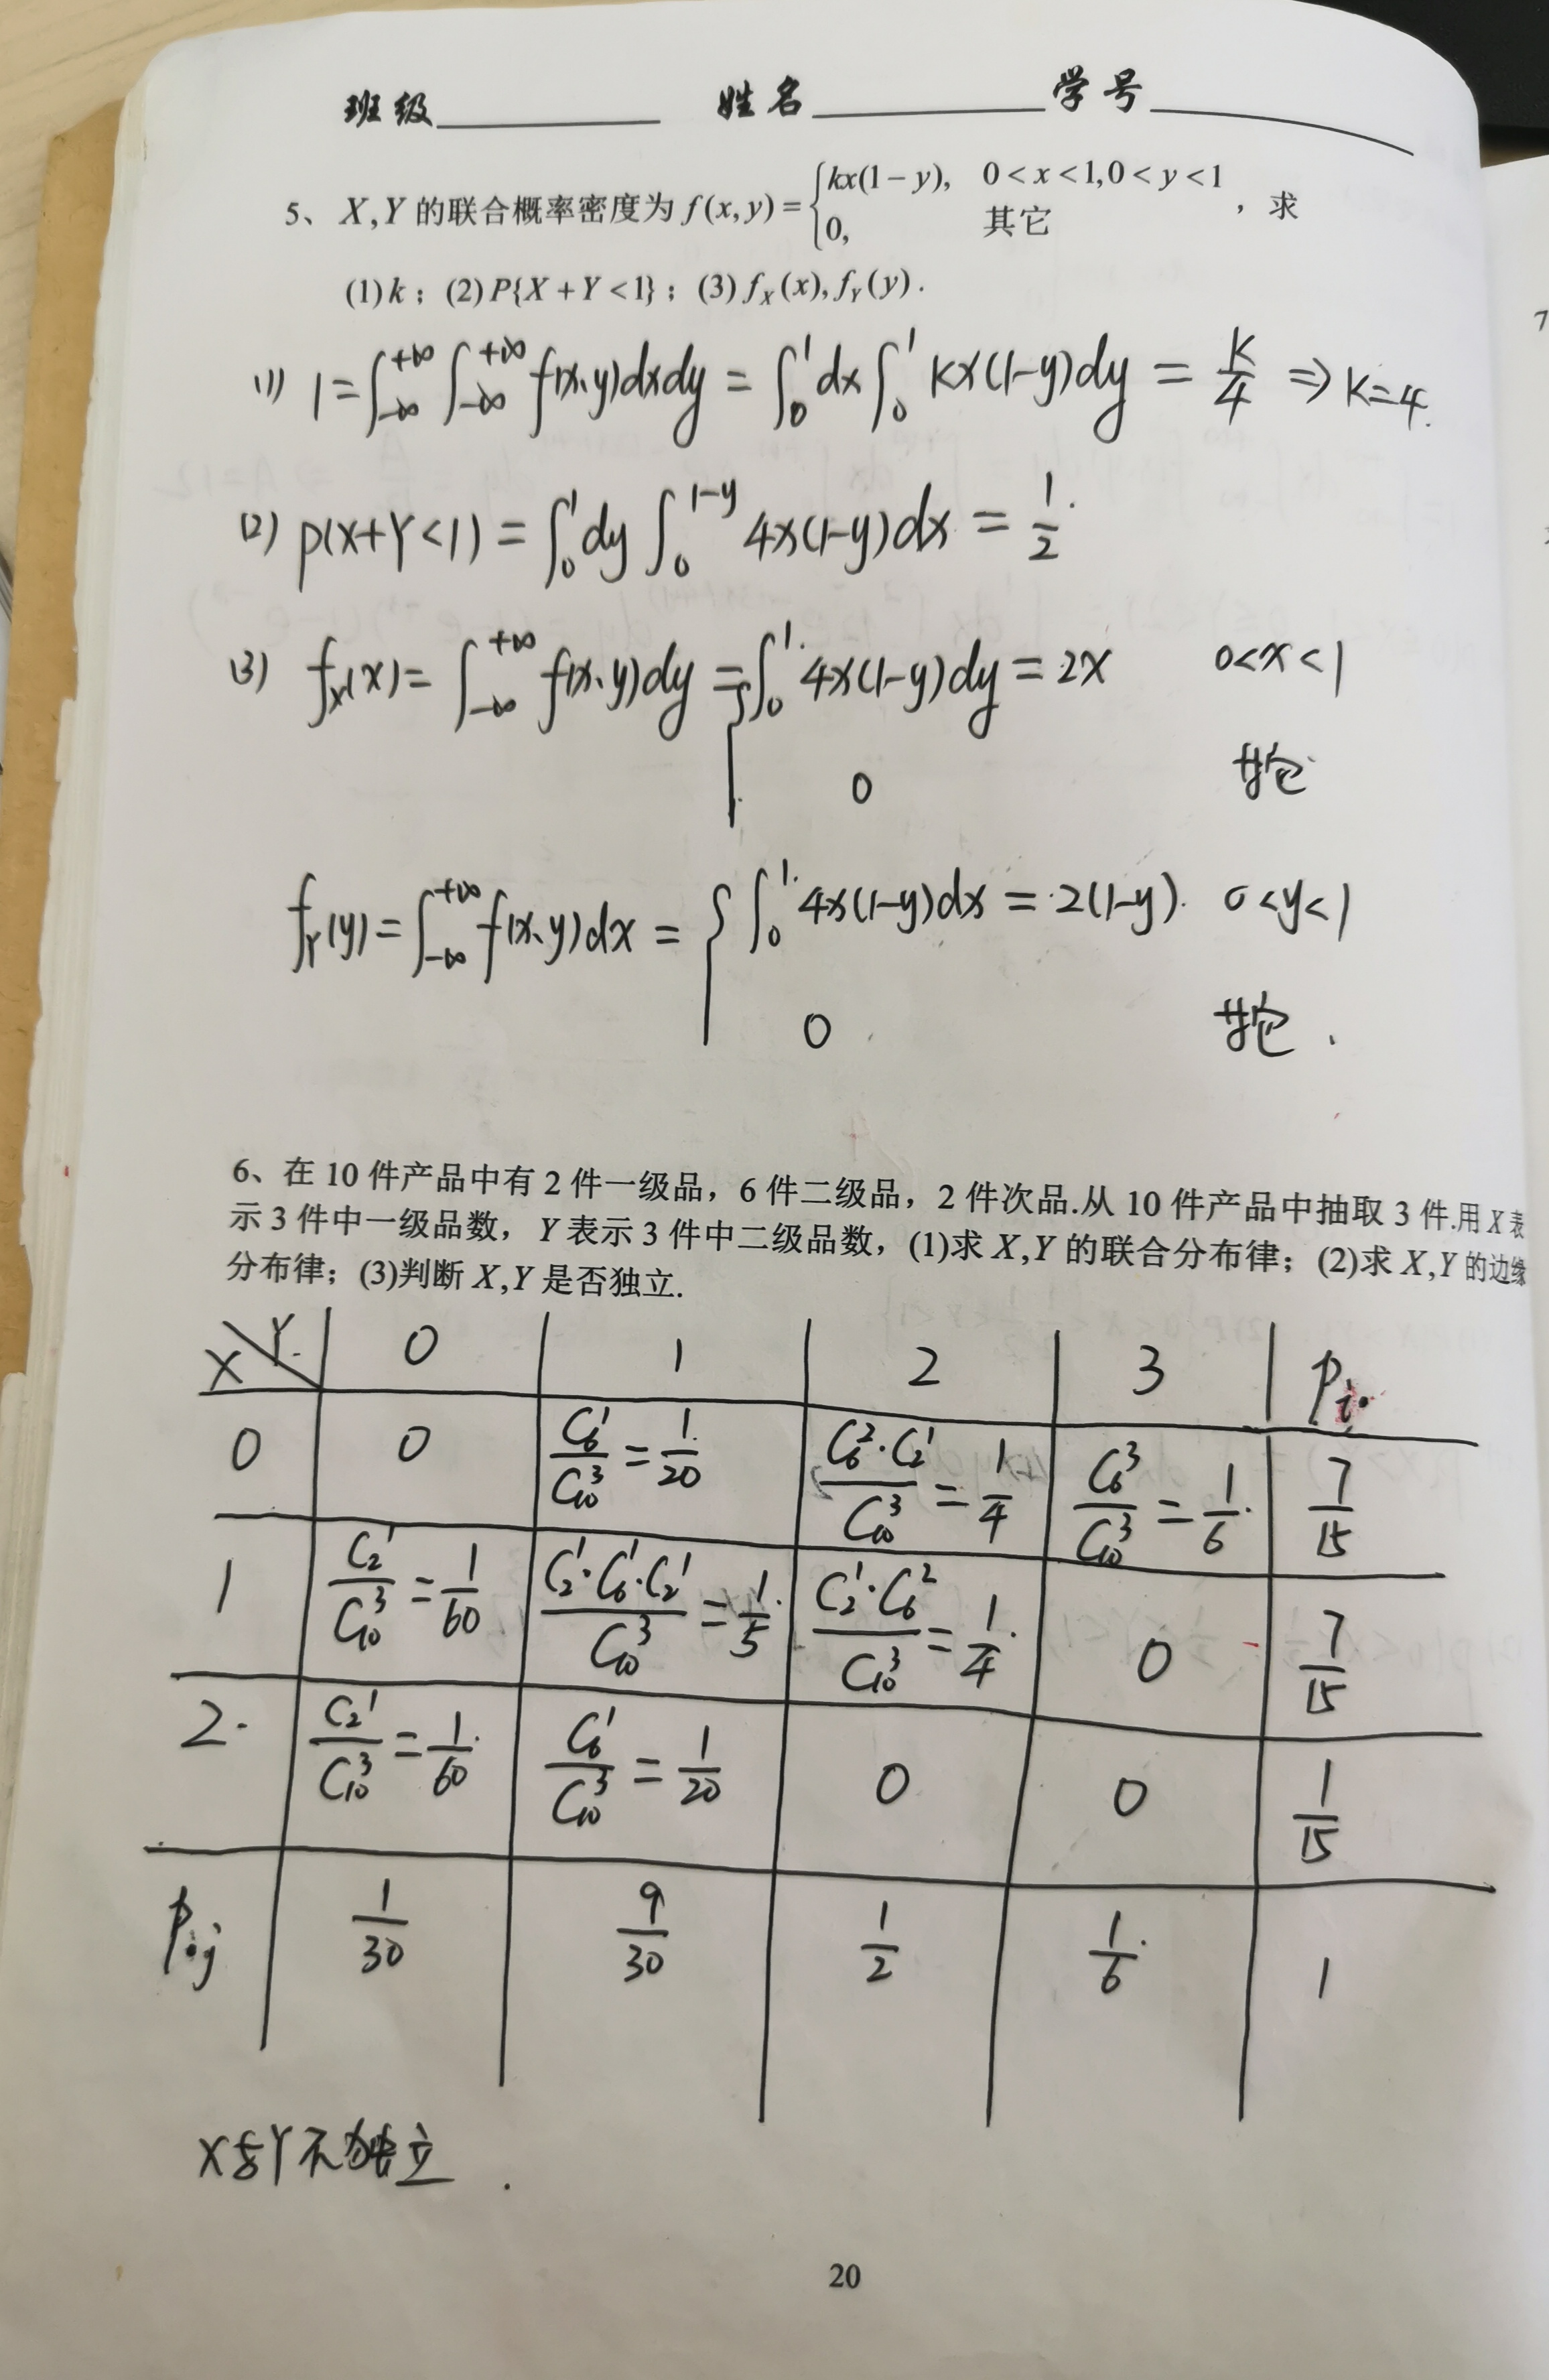 班级 姓名 学号
5、X,Y 的联合概率密度为 f(x,y)={kx(1−y), 0<x<1,0<y<1
0, 其它 ，求
(1)k；(2)P{X+Y<1}；(3)f_X(x),f_Y(y).
(1) 1=∫_{-∞}^{+∞}∫_{-∞}^{+∞}f(x,y)dxdy=∫_0^1dx∫_0^1kx(1-y)dy=k/4⇒k=4.
(2) P(X+Y<1)=∫_0^1dy∫_0^{1-y}4x(1-y)dx=1/2.
(3) f_X(x)=∫_{-∞}^{+∞}f(x,y)dy={∫_0^1 4x(1-y)dy=2x 0<x<1
0 其它
f_Y(y)=∫_{-∞}^{+∞}f(x,y)dx={∫_0^1 4x(1-y)dx=2(1-y). 0<y<1
0 其它.
6、在 10 件产品中有 2 件一级品，6 件二级品，2 件次品.从 10 件产品中抽取 3 件.用 X 表
示 3 件中一级品数，Y 表示 3 件中二级品数，(1)求 X,Y 的联合分布律；(2)求 X,Y 的边缘
分布律；(3)判断 X,Y 是否独立.
X Y 0 1 2 3 P_{i·}
0 0 C_6^1/C_{10}^3=1/20 C_6^2·C_2^1/C_{10}^3=1/4 C_6^3/C_{10}^3=1/6 7/15
1 C_2^1/C_{10}^3=1/60 C_2^1·C_6^1·C_2^1/C_{10}^3=1/5 C_2^1·C_6^2/C_{10}^3=1/4 0 7/15
2 C_2^1/C_{10}^3=1/60 C_6^1/C_{10}^3=1/20 0 0 1/15
P_{·j} 1/30 9/30 1/2 1/6 1
X与Y不独立.
20